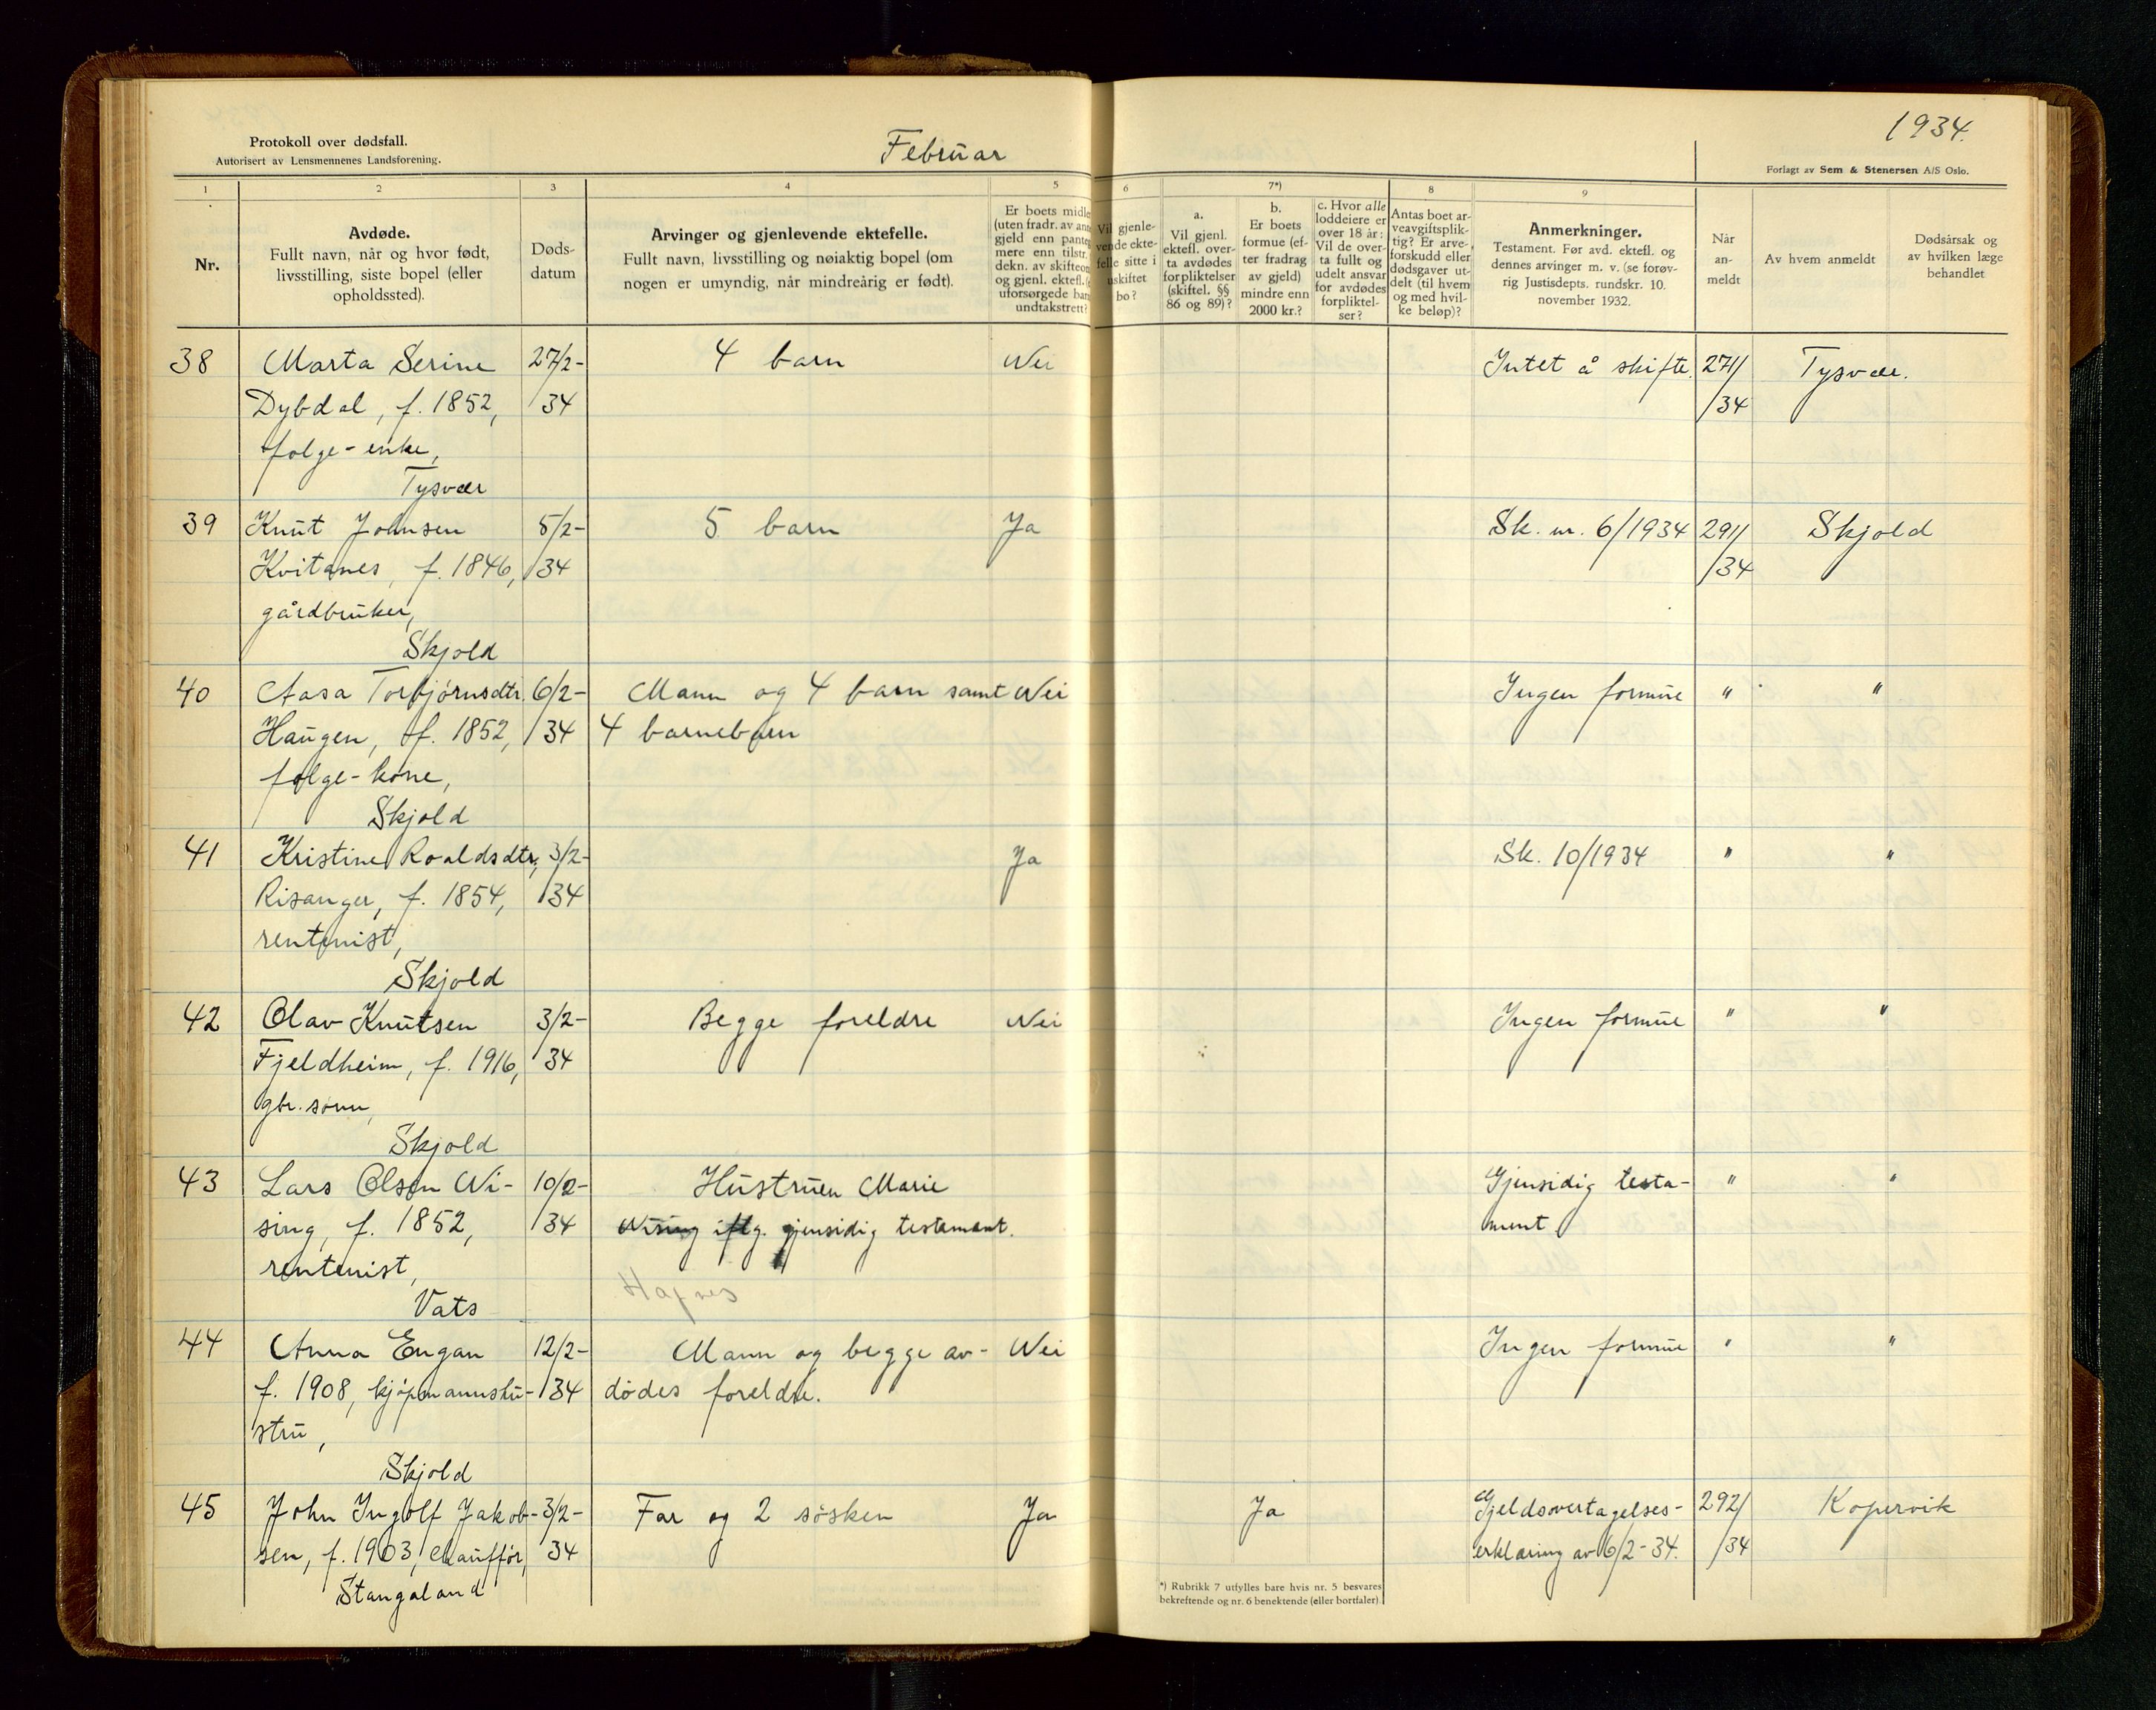 Protokoll over dødsfall.
Autorisert av Lensmennenes Landsforening.
Februar
1934.
Forlagt av Sem & Stenersen A/S Oslo.
1
2
3
4
5
6
7*)
8
9
Nr.
Avdøde.
Fullt navn, når og hvor født,
livsstilling, siste bopel (eller
opholdssted).
Døds-
datum
Arvinger og gjenlevende ektefelle.
Fullt navn, livsstilling og nøiaktig bopel (om
nogen er umyndig, når mindreårig er født).
Er boets midle
(uten fradr. av ann
gjeld enn pante
mere enn tilstr.
dekn. av skifteom
og gjenl. ektefl.
uforsørgede bar
undtakstrett?
Vil gjenle-
vende ekte-
felle sitte i
uskiftet
bo?
a.
Vil gjenl.
ektefl. over-
ta avdødes
forpliktelser
(skiftel. §§
86 og 89)?
b.
Er boets
formue (ef-
ter fradrag
av gjeld)
mindre enn
2000 kr.?
c. Hvor alle
loddeiere er
over 18 år:
Vil de over-
ta fullt og
udelt ansvar
for avdødes
forpliktel-
ser?
Antas boet ar-
veavgiftsplik-
tig? Er arve-
forskudd eller
dødsgaver ut-
delt (til hvem
og med hvil-
ke beløp)?
Anmerkninger.
Testament. Før avd. ektefl. og
dennes arvinger m. v. (se forøv-
rig Justisdepts. rundskr. 10.
november 1932.
Når
an-
meldt
Av hvem anmeldt
Dødsårsak og
av hvilken læge
behandlet
38 Marta Serine 27/2- 4 barn Nei Intet å skifte. 271/ Tysvær.
Dybdal, f. 1852, 34 /34
folge-enke,
Tysvær
39 Knut Johnsen 5/2- 5 barn Ja Sk. nr. 6/1934 291/ Skjold
Kvitanes, f. 1846, 34 /34
gårdbruker,
Skjold
40 Aasa Torbjørnsdtr. 6/2- Mann og 4 barn samt Nei Ingen formue " "
Haugen, f. 1852, 34 4 barnebarn
folge-kone,
Skjold
41 Kristine Roaldsdtr, 3/2- Ja Sk. 10/1934 " "
Risanger, f. 1854, 34
rentenist,
Skjold
42 Olav Knutsen 3/2- Begge foreldre Nei Ingen formue " "
Fjeldheim, f. 1916, 34
gbr. sønn,
Skjold
43 Lars Olsen Ni- 10/2- Hustruen Marie Gjensidig testa- " "
sing, f. 1852, 34 Nising iflg. gjensidig testament. ment
rentenist,
Vats
44 Anna Engan 12/2- Mann og begge av- Nei Ingen formue " "
f. 1908, kjøpmannshu- 34 dødes foreldre.
stru,
Skjold
45 John Ingolf Jakob- 3/2- Far og 2 søsken Ja Ja Gjeldsovertagelses- 292/ Kopervik
sen, f. 1903, chauffør, 34 erklæring av 6/2-34. /34
Stangaland
*) Rubrikk 7 utfylles bare hvis nr. 5 besvares
bekreftende og nr. 6 benektende (eller bortfaler)